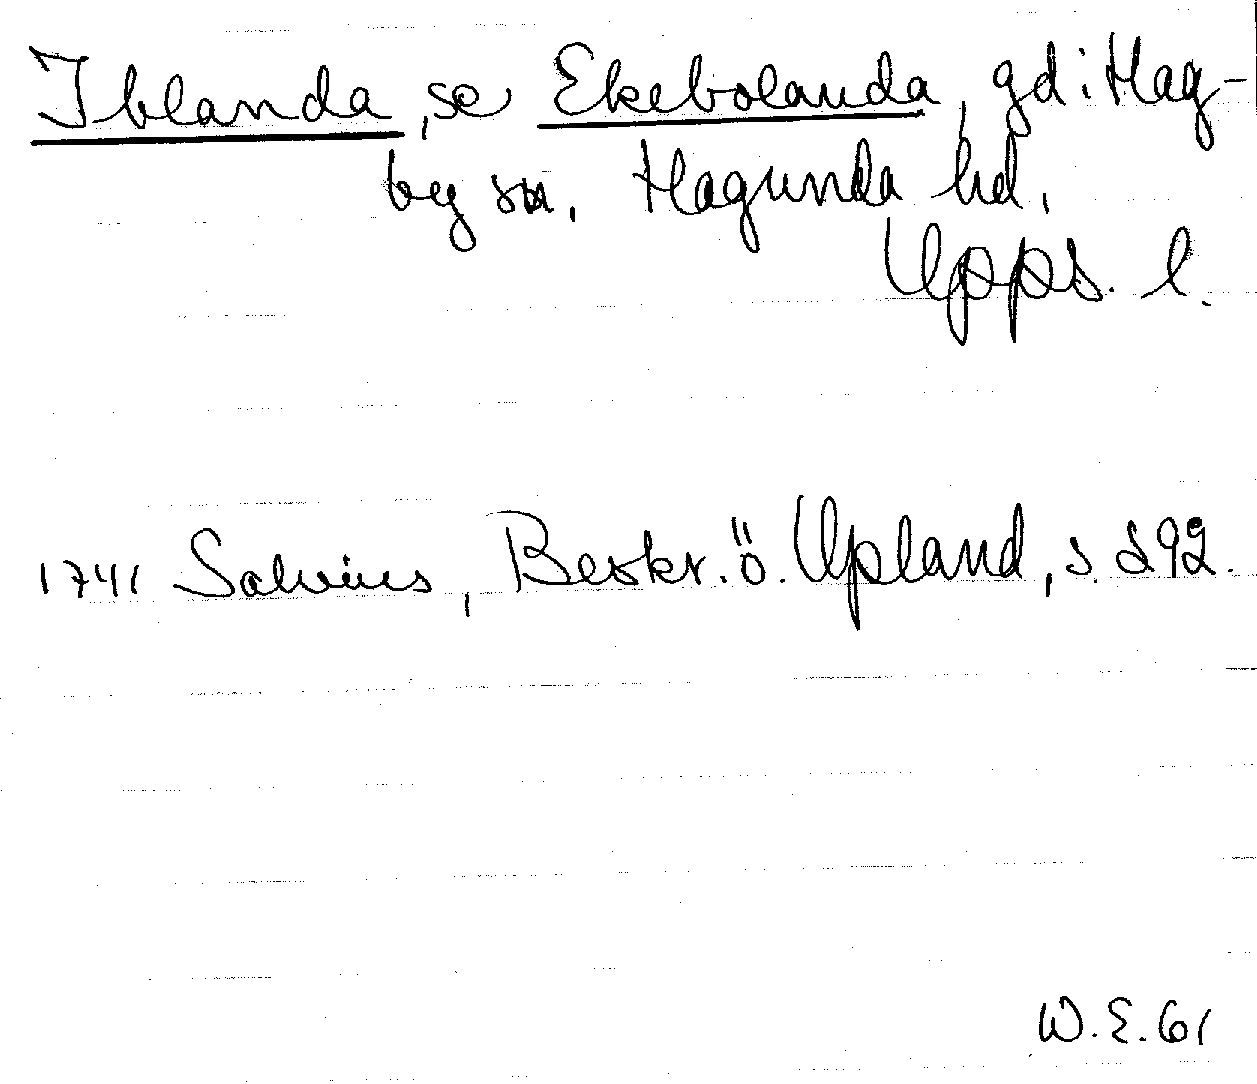 Iblanda, se Ekebolanda, gd i Hag-
by sn. Hagunda hd.
Upps. l.
1741 Salvius, Beskr. ö. Upland, s. 292.
W.E.61